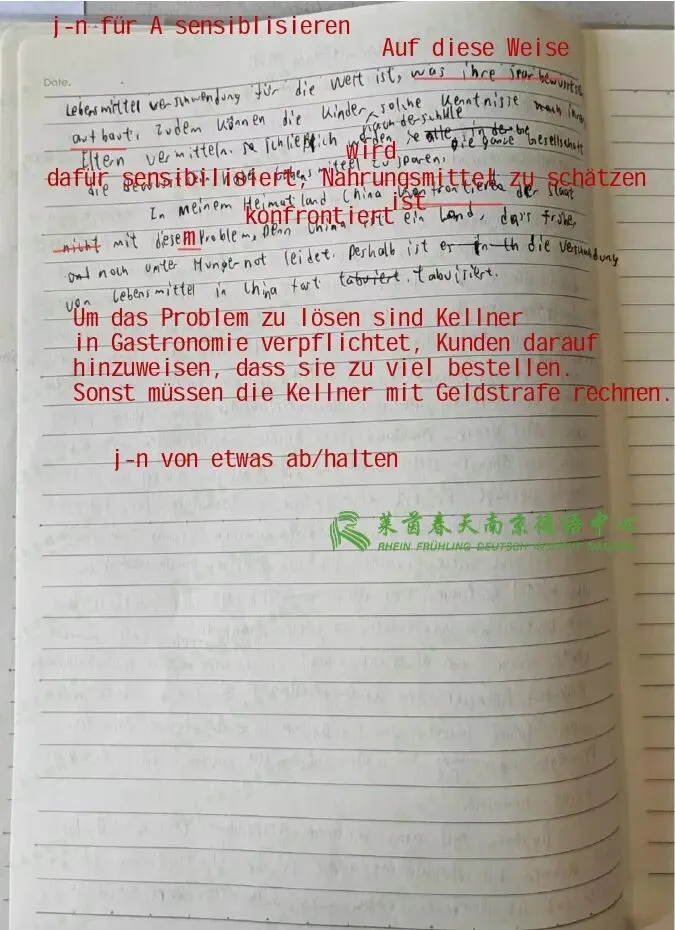 j-n für A sensiblisieren
Auf diese Weise
Date.
Lebensmittel verschwendung für die Welt ist, was ihre sparbewusstsein
aufbaut. Zudem können die Kinder solche Kenntnisse nach ihre
nach der schule
Eltern vermitteln. schließlich werden die ganze Gesellschaft
wird
dafür sensibilisiert, Nahrungsmittel zu schätzen
Lebensmittel zu sparen.
In meinem Heimatland China konfrontieren der Staat
konfrontiert ist
nicht mit diesem Problem, Denn China ist ein Land, dass früher
und noch unter Hungernot leidet. Deshalb ist es die Verschwendung
von Lebensmittel in China fast tabuisiert.
Um das Problem zu lösen sind Kellner
in Gastronomie verpflichtet, Kunden darauf
hinzuweisen, dass sie zu viel bestellen.
Sonst müssen die Kellner mit Geldstrafe rechnen.
j-n von etwas ab/halten
莱茵春天南京德语中心
RHEIN FRÜHLING DEUTSCH INSTITUT NANJING